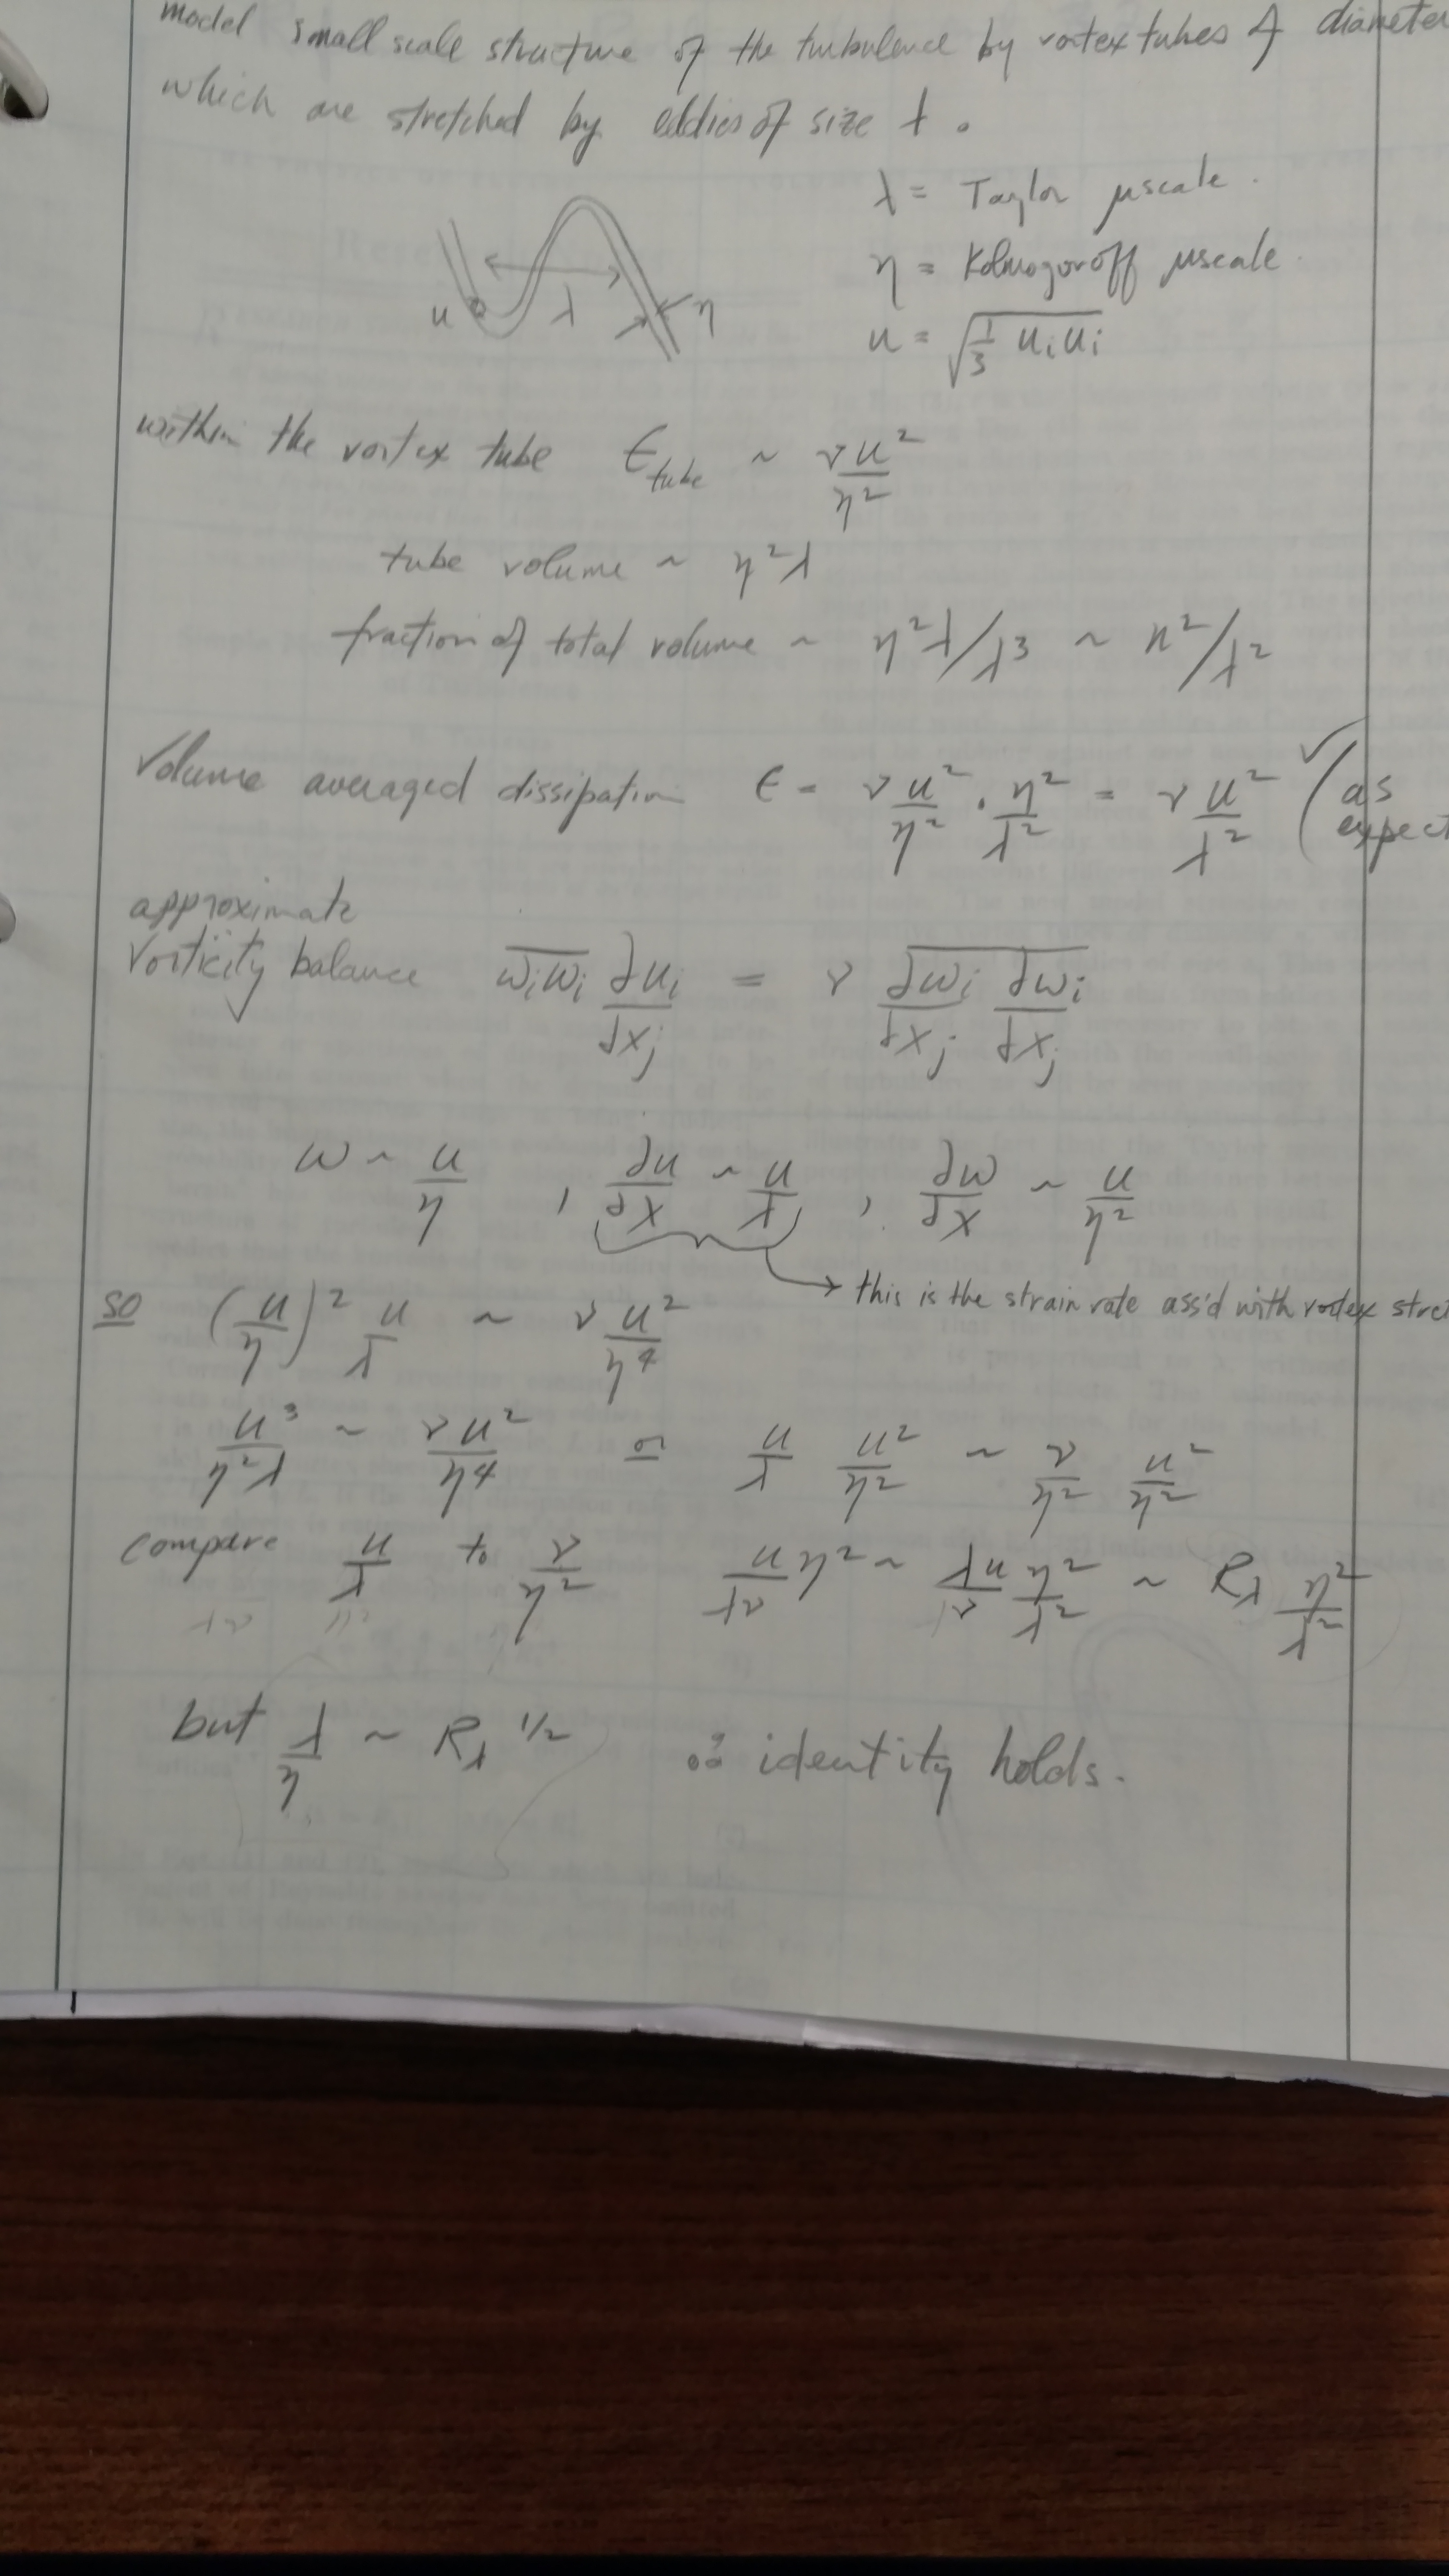 model small scale structure of the turbulence by vortex tubes of diameter
which are stretched by eddies of size λ.
λ = Taylor μscale.
η = Kolmogoroff μscale.
u = √(1/3 uᵢuᵢ)
u λ η
within the vortex tube ϵ_tube ~ νu²/η²
tube volume ~ η²λ
fraction of total volume ~ η²λ/λ³ ~ η²/λ²
Volume averaged dissipation ϵ = ν u²/η² · η²/λ² = ν u²/λ² (as
expect
approximate
Vorticity balance ωᵢωᵢ ∂uᵢ/∂xⱼ = ν ∂ωᵢ/∂xⱼ ∂ωᵢ/∂xⱼ
ω ~ u/η , ∂u/∂x ~ u/λ , ∂ω/∂x ~ u/η²
→ this is the strain rate ass'd with vortex stre
so (u/η)² u/λ ~ ν u²/η⁴
u³/η²λ ~ νu²/η⁴ or u/λ u²/η² ~ ν/η² u²/η²
compare u/λ to ν/η² u/λν η² ~ λu/ν η²/λ² ~ Rλ η²/λ²
but λ/η ~ Rλ^1/2 ∴ identity holds.